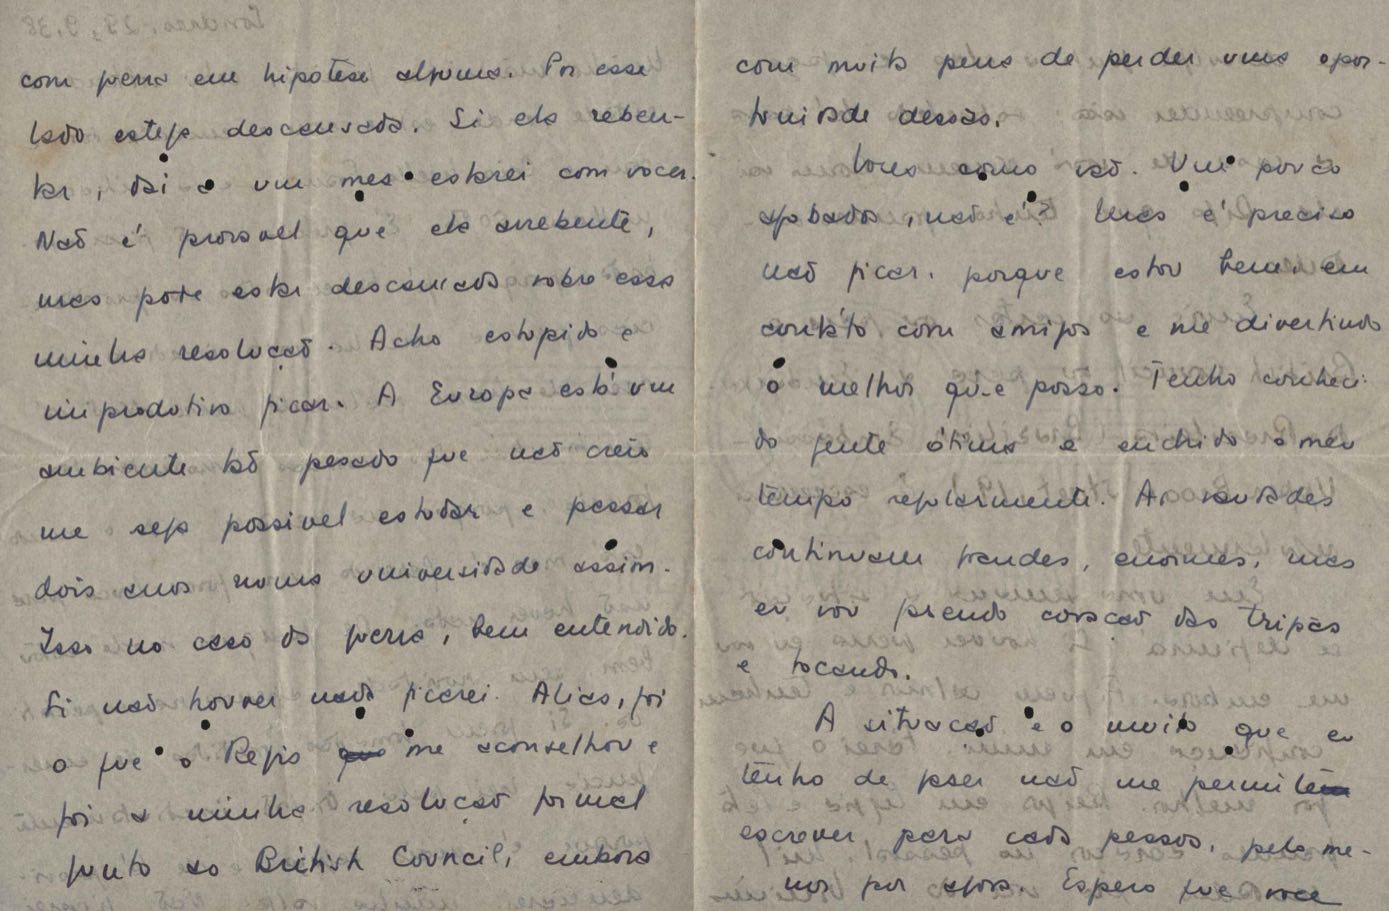 com guerra em hipotese alguma. Por esse
lado esteja descansada. Si ela reben-
tar, daí a um mes estarei com voces.
Não é provavel que ela arrebente,
mas pode estar descansada sobre essa
minha resolução. Acho estupido e
improdutivo ficar. A Europa está um
ambiente tão pesado que não creio
me seja possivel estudar e passar
dois anos numa universidade assim.
Isso no caso da guerra, bem entendido.
Si não houver nada ficarei. Alias, foi
o que o Regis que me aconselhou e
foi a minha resolução formal
junto ao British Council, embora
com muita pena de perder uma opor-
tunidade dessas.
como vão. Um pouco
afobados, não é? Mas é preciso
não ficar. porque estou bem, em
contáto com amigos e me divertindo
o melhor que posso. Tenho conheci-
do gente ótima e enchido o meu
tempo regularmente. As saudades
continuam grandes, enormes, mas
eu vou coração das tripas
e tocando.
A situação e o muito que eu
tenho de fazer não me permitem
escrever para cada pessoa, pelo me-
nos por agora. Espero que voce